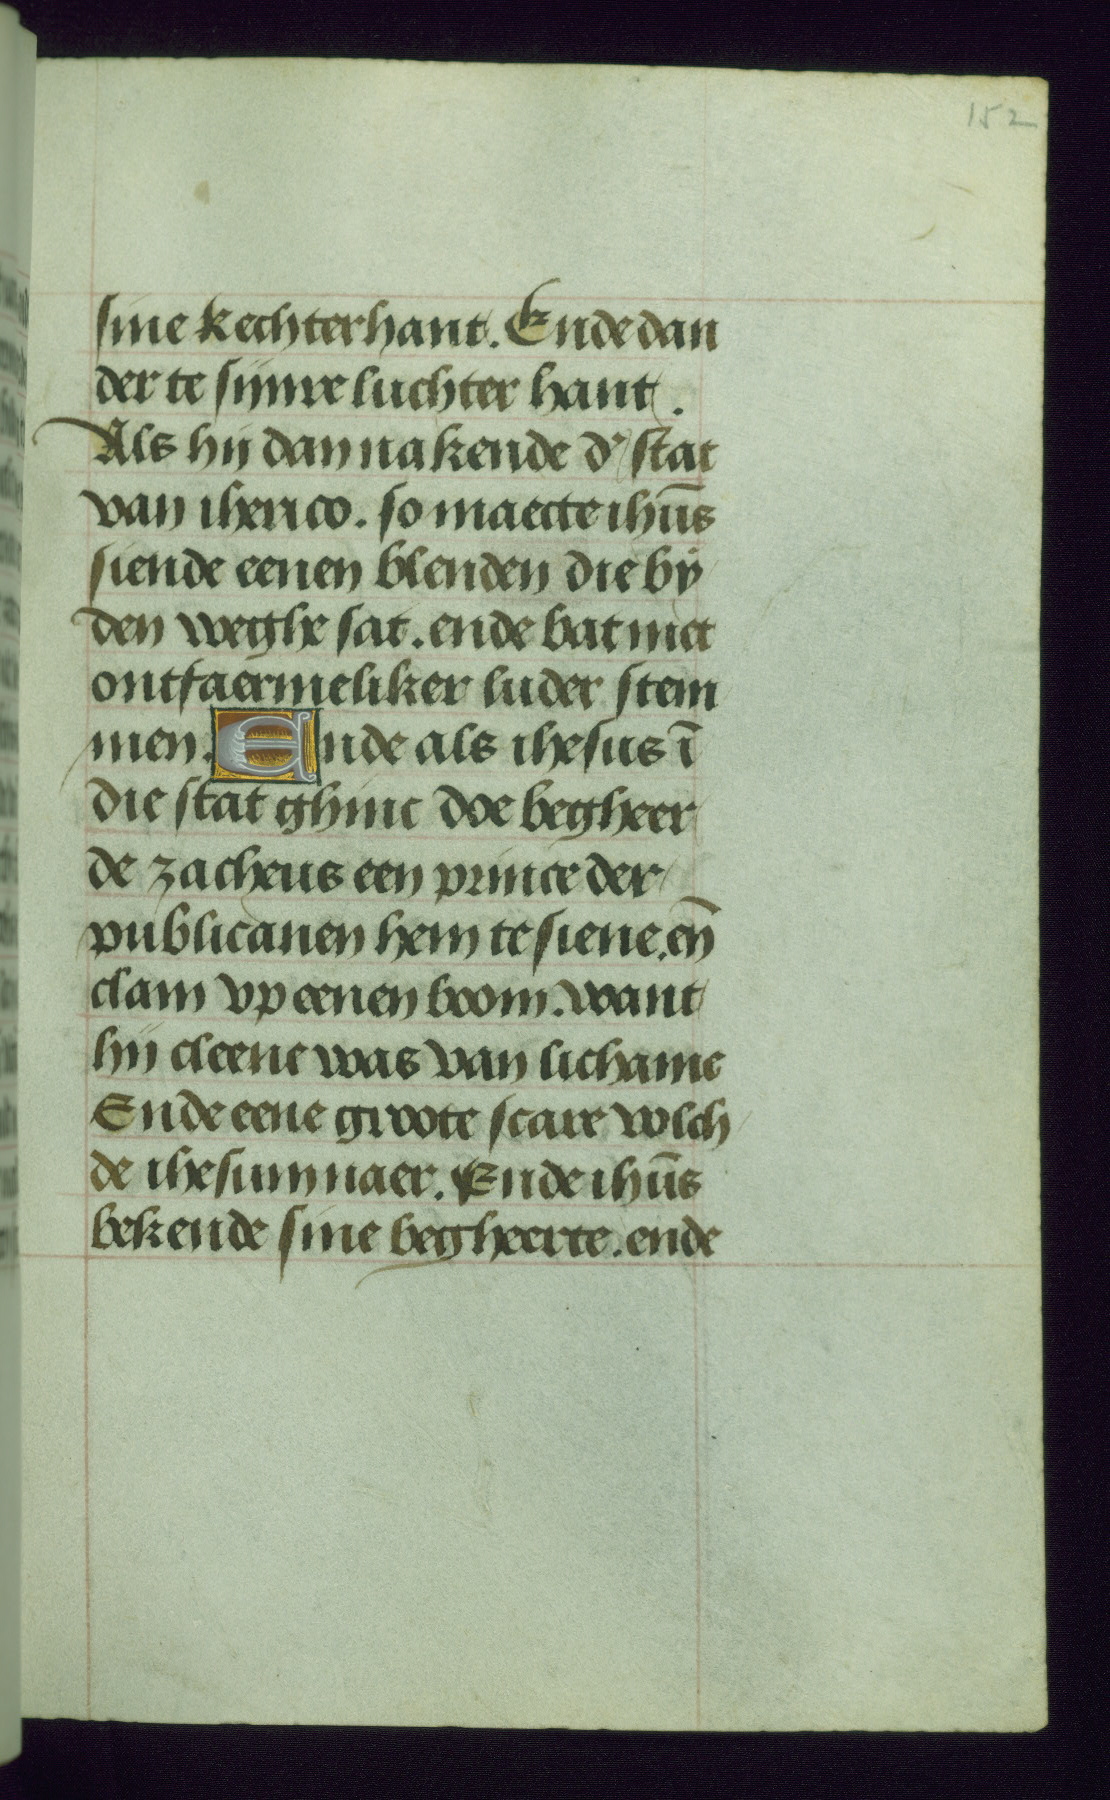 152
sine Rechterhant. Ende dan
der te sijnre luchter hant.
Als hij dan nakende d' stat
van iherico. so maecte ihūs
siende eenen blenden die bÿ
den weghe sat. ende bat met
ontfaermeliker luder stem
men. Ende als ihesus ī
die stat ghinc doe begheer
de zacheus een prince der
publicanen hem te siene. eñ
clam vp eenen boom. want
hij cleene was van lichame
Ende eene groote scare volch
de ihesum naer. Ende ihūs
bekende sine begheerte. ende